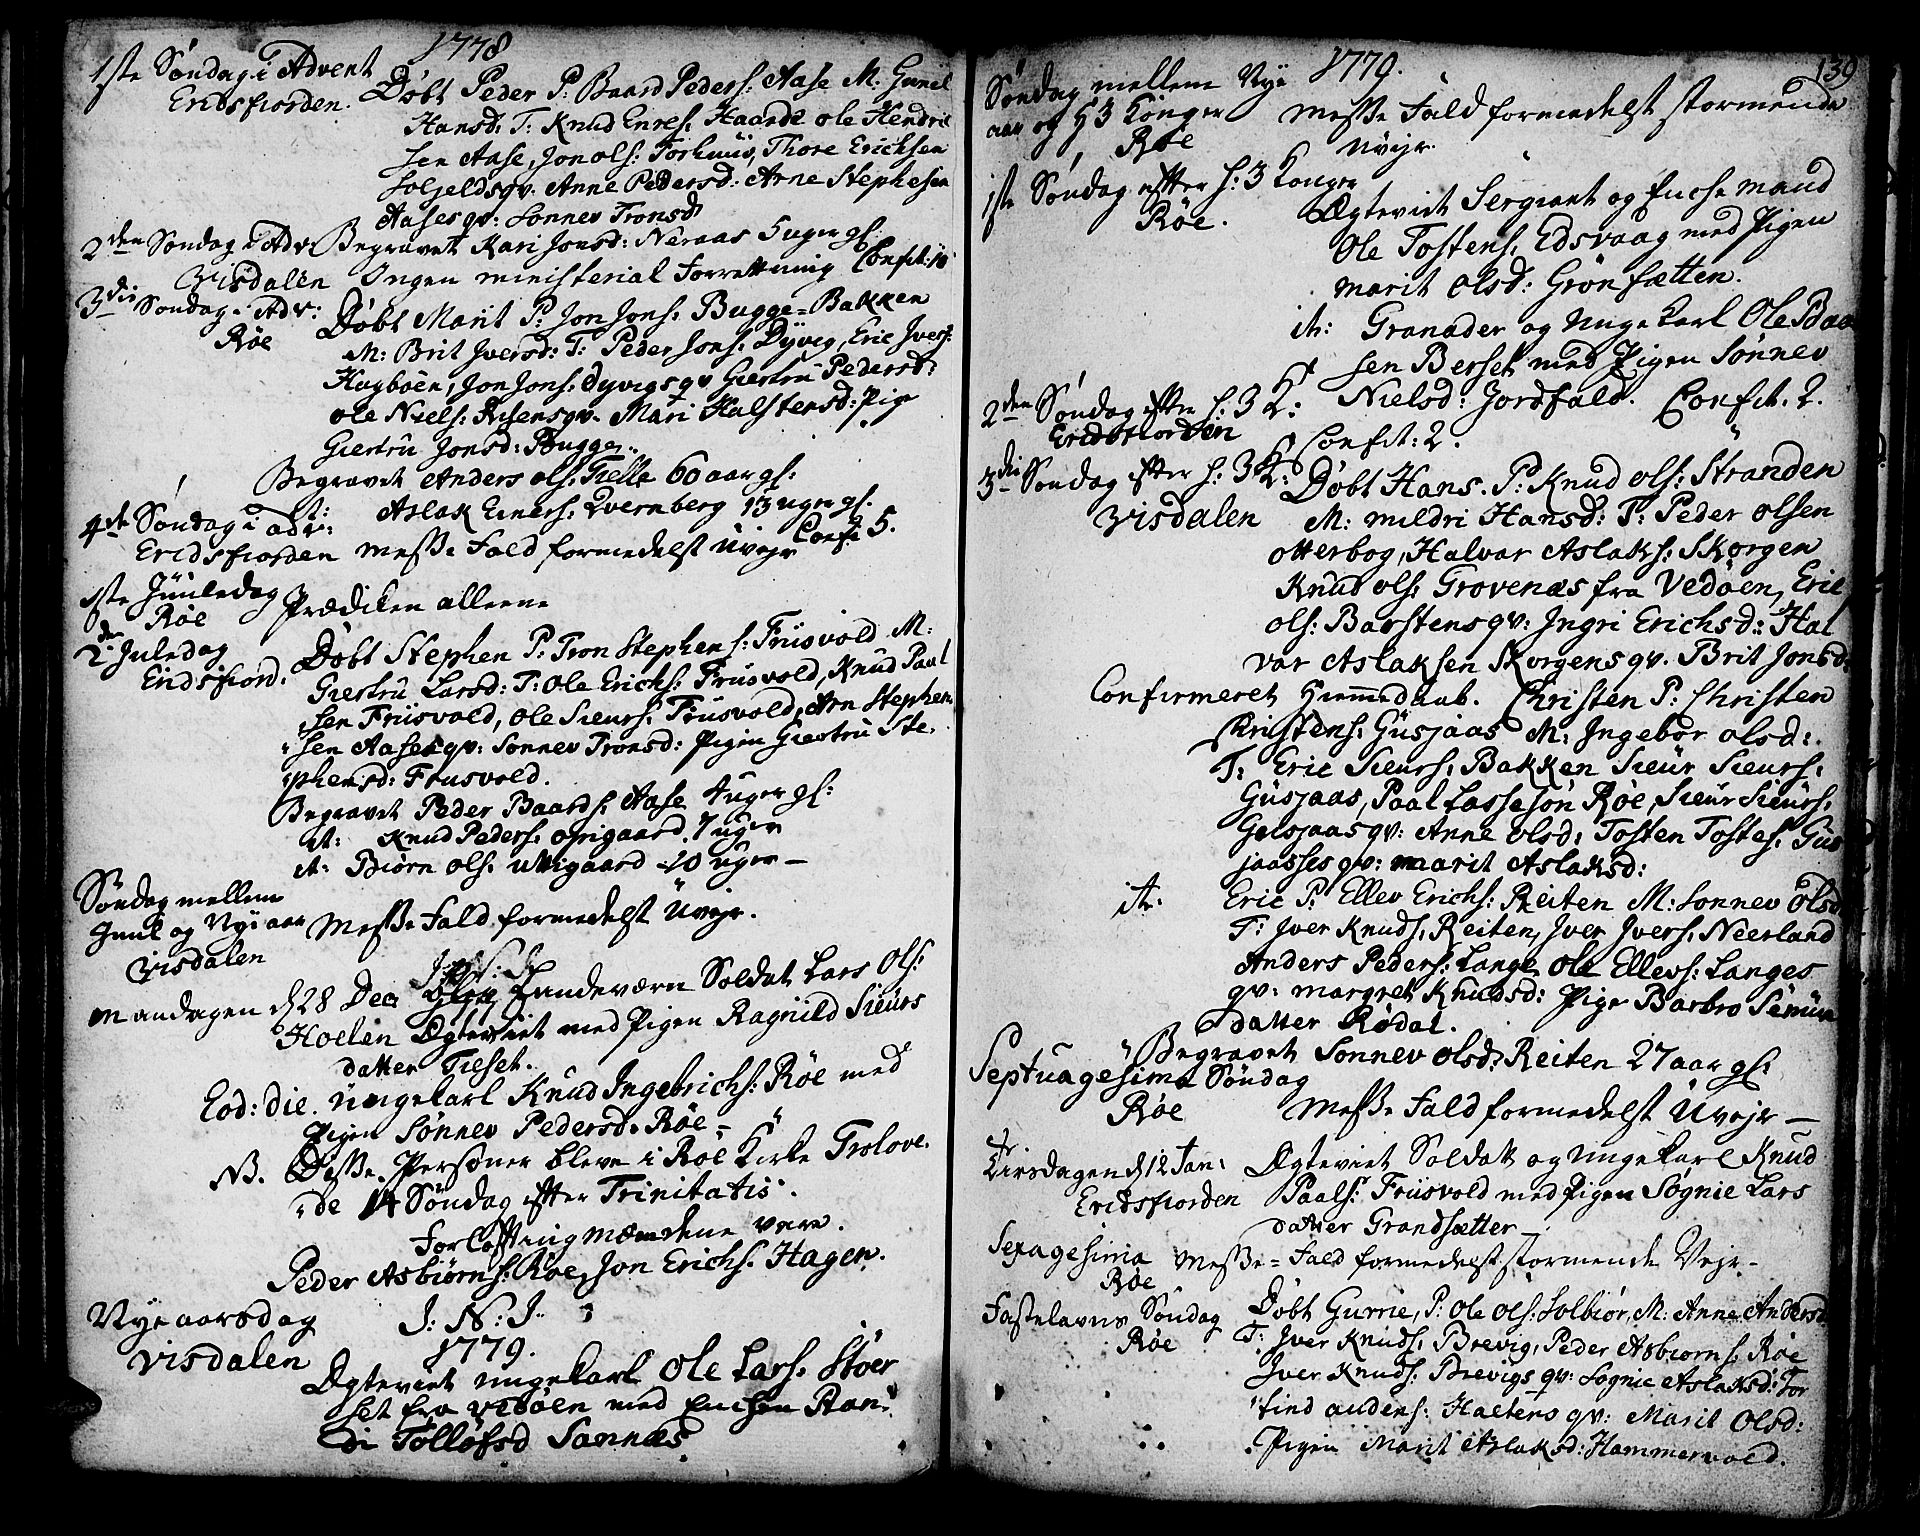 1778
1ste Søndag i Advent
Eridsfiorden. Døbt Peder P: Baard Peders: Aase M: Gunil
Hansd: T: Knud Enres: Haarde Ole Hendrik
sen Aase, Jon Ols: Torhuus, Thore Erichsen
Soljeldsqv. Anne Pedersd: Arne Stephesen
Aases qv: Sønnev Tronsd
2den Søndag i Adv: Begravet Kari Jonsd: Neraas 5 uger gl:
Visdalen Ingen ministerial Forrettning Confit: 10
3die Søndag i Adv:
Røe Døbt Marit P: Jon Jons: Bugge-Bakken
M: Brit Iversd: T: Peder Jons: Dyvig, Eric Ivers:
Hagbøen, Jon Jons: Dyvigs qv Giertru Pedersd:
Ole Niels: Risens qv. Mari Halstensd: Pige
Giertru Jonsd: Bugge.
Begravet Anders Ols: Tielle 60 aar gl:
it: Aslak Einers: Qvernberg 13 uger gl.
4de Søndag i Adv: Confit: 5.
Eridsfiorden Messe Fald formedelst Uvejr
1ste Juuledag
Røe Prædiken alleene
2den Juledag
Eridsfiord. Døbt Stephen P: Tron Stephens: Friisvold M:
Giertru Larsd: T: Ole Erichs: Friisvold, Knud Paal
sen Friisvold, Ole Sieurs: Friisvold, Arn Stephen
sen Aases qv: Sønnev Tronsd: Pigen Giertru Ste
phensd: Friisvold.
Begravet Peder Baards: Aase 4 uger gl:
it: Knud Peders: Opigaard 7 uger
it: Biørn Ols: Uttigaard 10 uger —
Søndag mellem
Juul og Nyeaar Messe Fald formedelst Uvejr.
Visdalen
Mandagen d 28 Dec: Landeværn Soldat Lars Ols:
Hoelen Ægteviet med Pigen Ragnild Sieurs
datter Tieset.
Eod: die. Ungekarl Knud Ingebrichs: Røe med
Pigen Sønnev Pedersd: Røe —
NB. Disse Personer bleve i Røe Kirke Trolove
de 14 Søndag efter Trinitatis.
Forlofningmændene vare.
Peder Asbiørns: Røe, Jon Erichs: Hagen.
Nyeaarsdag J: N: J:
1779.
Visdalen
Ægteviet Ungekarl Ole Lars: Støer
set fra Vedøen med Enchen Ran
di Tolløfsd Sannæs
1779. 139
Søndag mellem Nye
aar og H 3 Konger Messe Fald formedelst stormende
Røe Uvejr.
1ste Søndag efter H: 3 Konger
Røe. Ægteviet Sergiant og Enchemand
Ole Tostens: Edsvaag med Pigen
Marit Olsd: Grønsætten.
it: Granader og Ungekarl Ole Baa
sen Berset med Pigen Sønnev
Nielsd: Jordfald. Confit. 2.
2den Søndag efter H: 3 K:
Eridsfiorden Confit: 2.
3die Søndag efter H: 3 K: Døbt Hans. P: Knud Ols: Stranden
Visdalen M: Mildri Hansd: T: Peder Olsen
Otterbog, Halvar Aslaks: Skorgen
Knud Ols: Grovenæs fra Vedøen, Eric
Ols: Barstens qv: Ingri Erichsd: Hal
var Aslaksen Skorgens qv. Brit Jonsd:
Confirmeret Hiemmedaab. Christen P: Christen
Christens: Gusjaas M: Ingebor Olsd:
T: Eric Sieurs: Bakken Sieur Sieurs:
Gusjaas, Paal Lassesøn Røe, Sieur Sieurs:
Gusjaas qv: Anne Olsd: Tosten Tostes: Gus
jaasses qv: Marit Aslaksd:
it: Eric P: Ellev Erichs: Reiten M: Sønnev Olsd
T: Iver Knuds: Reiten, Iver Ivers: Neerland
Anders Peders: Lange Ole Ellevs: Langes
qv: Margret Knudsd: Pige Barbro Semun
datter Rødal.
Begravet Sønnev Olsd: Reiten 27 aar gl:
Septuagesima Søndag
Røe Messe Fald formedelst Uvejr —
Tirsdagen d 12 Jan: Ægteviet Soldat og Ungekarl Knud
Eridsfiorden Paals: Friisvold med Pigen Søgnie Lars
datter Grandsætter —
Sexagesima Messe-Fald formedelst stormende Vejr —
Røe
Fastelavns Søndag Døbt Gurrie, P: Ole Ols: Solbiør, M: Anne Andersd
Røe T: Iver Knuds: Brevig, Peder Asbiørns: Røe
Iver Knuds: Brevigs qv: Søgnie Aslaksd: Tor
find Anders: Haltens qv: Marit Olsd:
Pigen Marit Aslaksd: Hammervold.